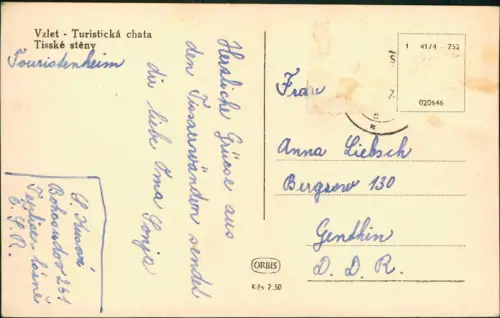 Vzlet - Turistická chata
Tisské stěny
Touristenheim
Herzliche Grüsse aus
den Tissaerwänden sendet
dir liebe Oma Sonja
S. Kusová
Bohosudov 261
Teplice-lázně
Č. S. R.
1 4174 - 752
020646
Frau
Anna Liebsch
Bergzow 130
Genthin
D. D. R.
ORBIS
Kčs 2.50